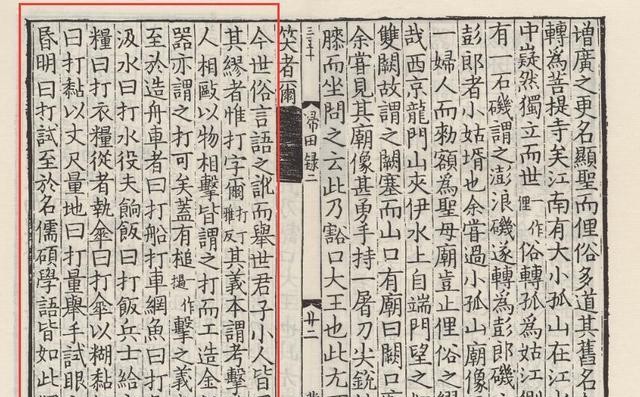 增廣之更名顯聖而俚俗多道其舊名
轉爲菩提寺矣江南有大小孤山在江水
中嶷然獨立而世俚一作俗轉孤爲姑江側
有一石磯謂之澎浪磯遂轉爲彭郎磯
彭郎者小姑壻也余嘗過小孤山廟像
一婦人而勑額爲聖母廟豈止俚俗之繆
哉西京龍門山夾伊水上自端門望之
雙闕故謂之闕塞而山口有廟曰闕口
余嘗見其廟像甚勇手持一屠刀尖銳
膝而坐問之云此乃豁口大王也此尤
歸田錄二
廿二
笑者爾
今世俗言語之訛而舉世君子小人皆
其繆者惟打字爾打丁雅反其義本謂考擊
人相毆以物相擊皆謂之打而工造金
器亦謂之打可矣蓋有槌一作撾擊之義
至於造舟車者曰打船打車網魚曰打
汲水曰打水役夫餉飯曰打飯兵士給
糧曰打衣糧從者執傘曰打傘以糊黏
曰打黏以丈尺量地曰打量舉手試眼
昏明曰打試至於名儒碩學語皆如此